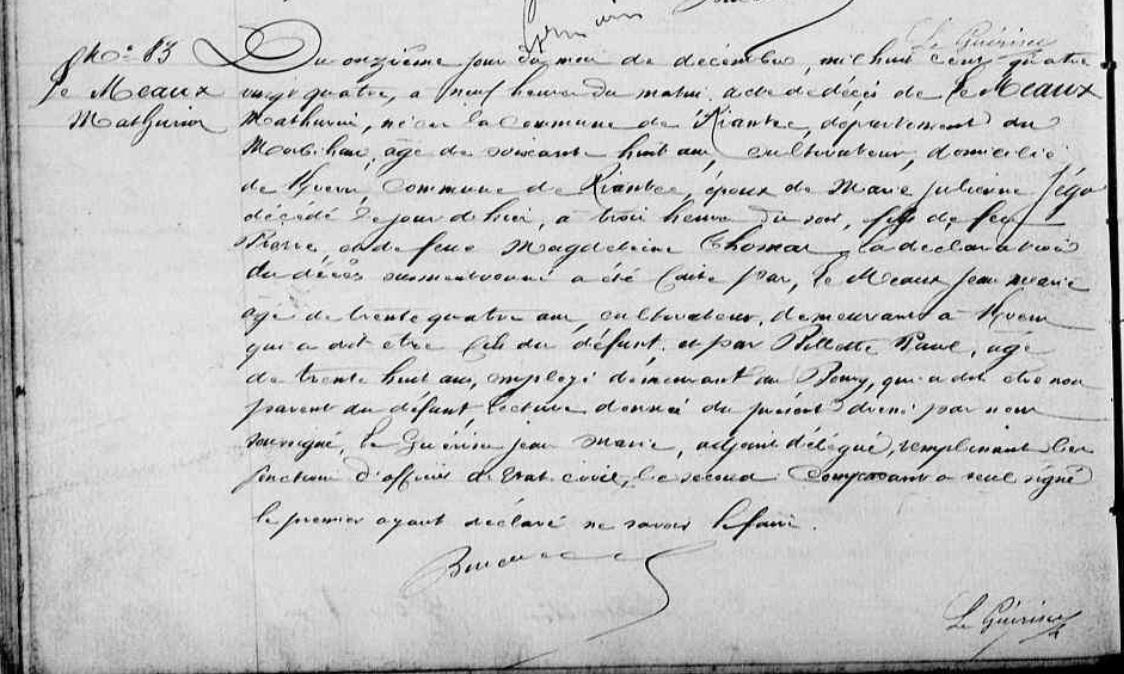 Le Guérineu
No 83
Le Meaux
Mathurin
Du onzième jour du mois de décembre, mil huit cent quatre
vingt quatre, à neuf heures du matin, acte de décès de Le Meaux
Mathurin, né en la commune de Riantec, département du
Morbihan, agé de soixante huit ans, cultivateur, domicilié
de Kvern Commune de Riantec, époux de Marie Julienne Jégo
décédé le jour d'hier, à trois heures du soir, fils de feu
Pierre, et de feue Magdeleine Thomas, la déclaration
du décès susmentionné a été faite par, Le Meaux Jean Marie
agé de trente quatre ans, cultivateur, demeurant à Kvern
qui a dit être fils du défunt, et par Paul, agé
de trente huit ans, employé demeurant au Bourg, qui a dit être non
parent du défunt, lecture donnée du présent par nous
soussigné, Le Guérineu jean Marie, adjoint délégué, remplissant les
fonctions d'officier de Etat civil, le second Comparant a seul signé
le premier ayant déclaré ne savoir le faire.
Le Guérineu